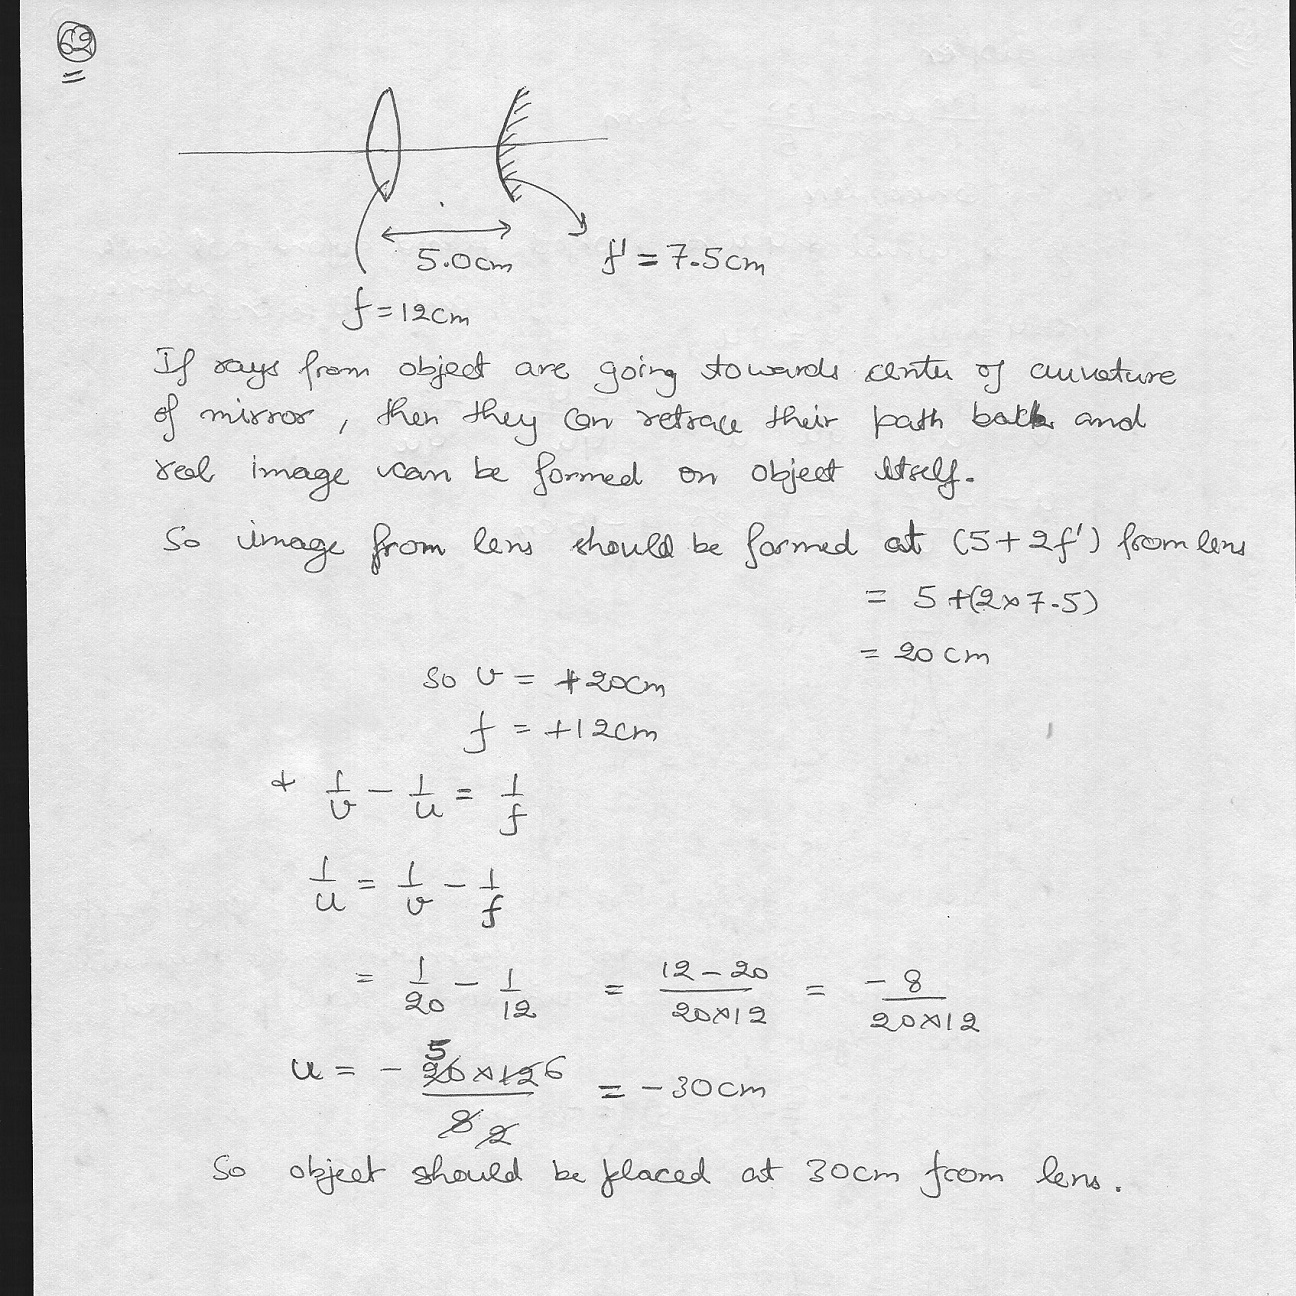 62
5.0cm
f' = 7.5cm
f = 12cm
If rays from object are going towards center of curvature
of mirror, then they can retrace their path back and
real image can be formed on object itself.
So image from lens should be formed at (5+2f') from lens
= 5+(2×7.5)
= 20cm
So v = +20cm
f = +12cm
& 1/v - 1/u = 1/f
1/u = 1/v - 1/f
= 1/20 - 1/12 = (12-20)/(20×12) = -8/(20×12)
u = - 5 20×12 6 / 8 2 = -30cm
So object should be placed at 30cm from lens.